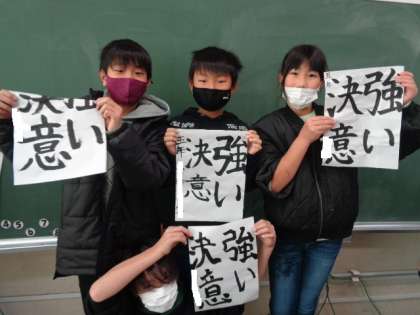 強い
決意
強い
決意
強い
決意
強い
決意